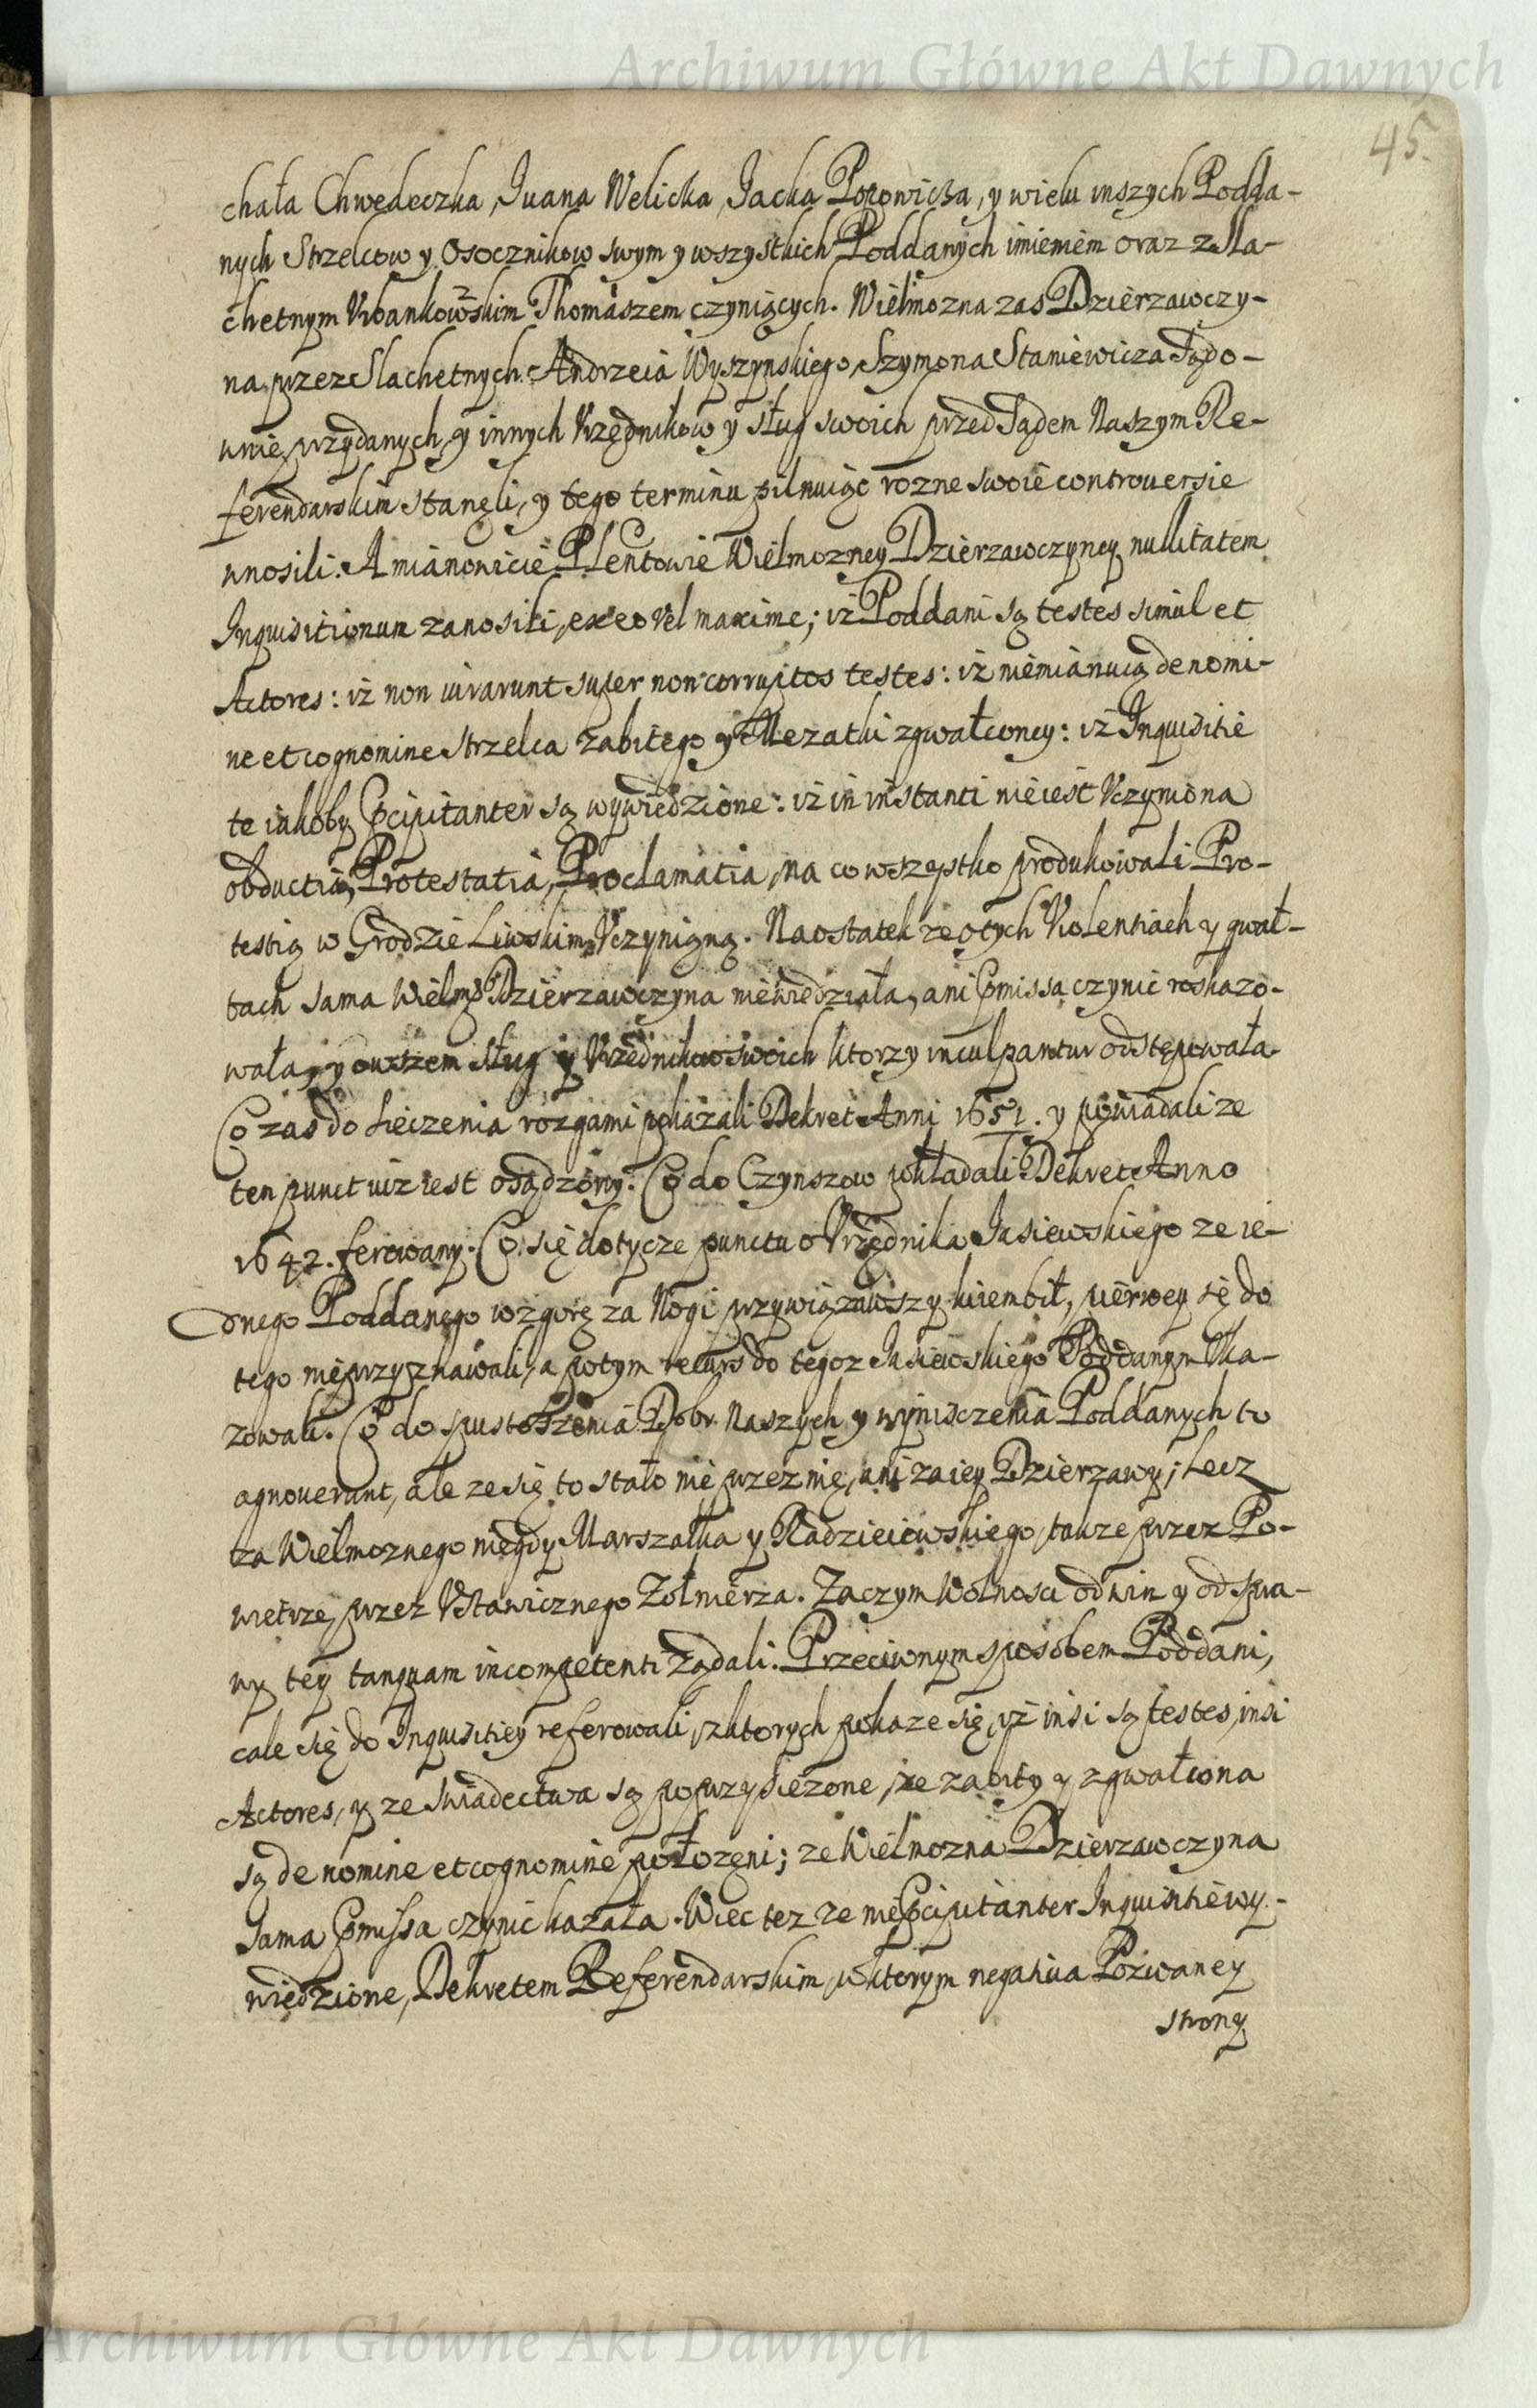 Archiwum Główne Akt Dawnych
45.
chała Chwedeczka, Iwana Welicka, Jacka Popowicza, y wielu inszych Podda-
nych Strzelcow y Osocznikow swym y wszystkich Poddanych imieniem oraz z Sla-
chetnym Vrbankowskim Thomaszem czyniących. Wielmozna zas Dzierzawczy-
na przez Slachetnych Andrzeia Wyszynskiego, Szymona Staniewicza Sądo-
wnie przydanych, y innych Vrzędnikow y sług swoich przed Sądem Naszym Re-
ferendarskim stanęli, y tego terminu pilnuiąc rozne swoie controuersie
wnosili. A mianowicie Plentowie Wielmozney Dzierzawczyney nullitatem
Inquisitionum zanosili, ex eo vel maxime; iż Poddani są testes simul et
Actores: iż non iurarunt super non corruptos testes: iż niemianuią de nomi-
ne et cognomine Strzelca zabitego y Mezatki zgwałconey: iż Inquisitie
te iakoby Pcipitanter są wywiedzione: iż in instanti nieiest Vczyniona
obductia, Protestatia, Proclamatia, na co wszystko produkowali Pro-
testią w Grodzie Liwskim Vczynioną. Naostatek ze o tych Violentiach y gwał-
tach sama Wielmo Dzierzawczyna niewiedziała, ani Cōmissa czynic roskazo-
wała, y owszem sług y Vrzędnikow swoich ktorzy inculpantur odstępowała.
Co zas do sieczenia rozgami pokazali Dekret Anni 1651. y powiadali ze
ten punct iuz iest osądzony. Co do Czynszow pokładali Dekret Anno
1642. ferowany. Co się dotycze punctu o Vrzędnika Jasiewskiego ze ie-
dnego Poddanego wzgorę za Nogi przywiązawszy kiiem bił, pierwey się do
tego nieprzyznawali, a potym recurs do tegoz Jasiewskiego Poddanym Vka-
zowali. Co do spustoszenia Dobr Naszych y wyniszczenia Poddanych to
agnouerunt, ale ze się to stało nie przez nię, ani za iey Dzierzawy; Lecz
za Wielmoznego niegdy Marszałka y Radzieiewskiego, takze przez Po-
wietrze, przez Vstawicznego Zołnierza. Zaczym Wolnosci od win y od spra-
wy tey tanquam incompetenti żądali. Przeciwnym sposobem Poddani,
cale się do Inquisitiey referowali, z ktorych pokaze się, iż insi są testes, insi
Actores, y ze swiadectwa są poprzysiezone, ze zabity y zgwałcona
są de nomine et cognomine połozeni; ze Wielmozna Dzierzawczyna
sama Cōmissa czynic kazała. Wiec tez ze nie Pcipitanter Inquisitie wy-
wiedzione, Dekretem Referendarskim, w ktorym negatiua Pozwaney
strony
Archiwum Główne Akt Dawnych